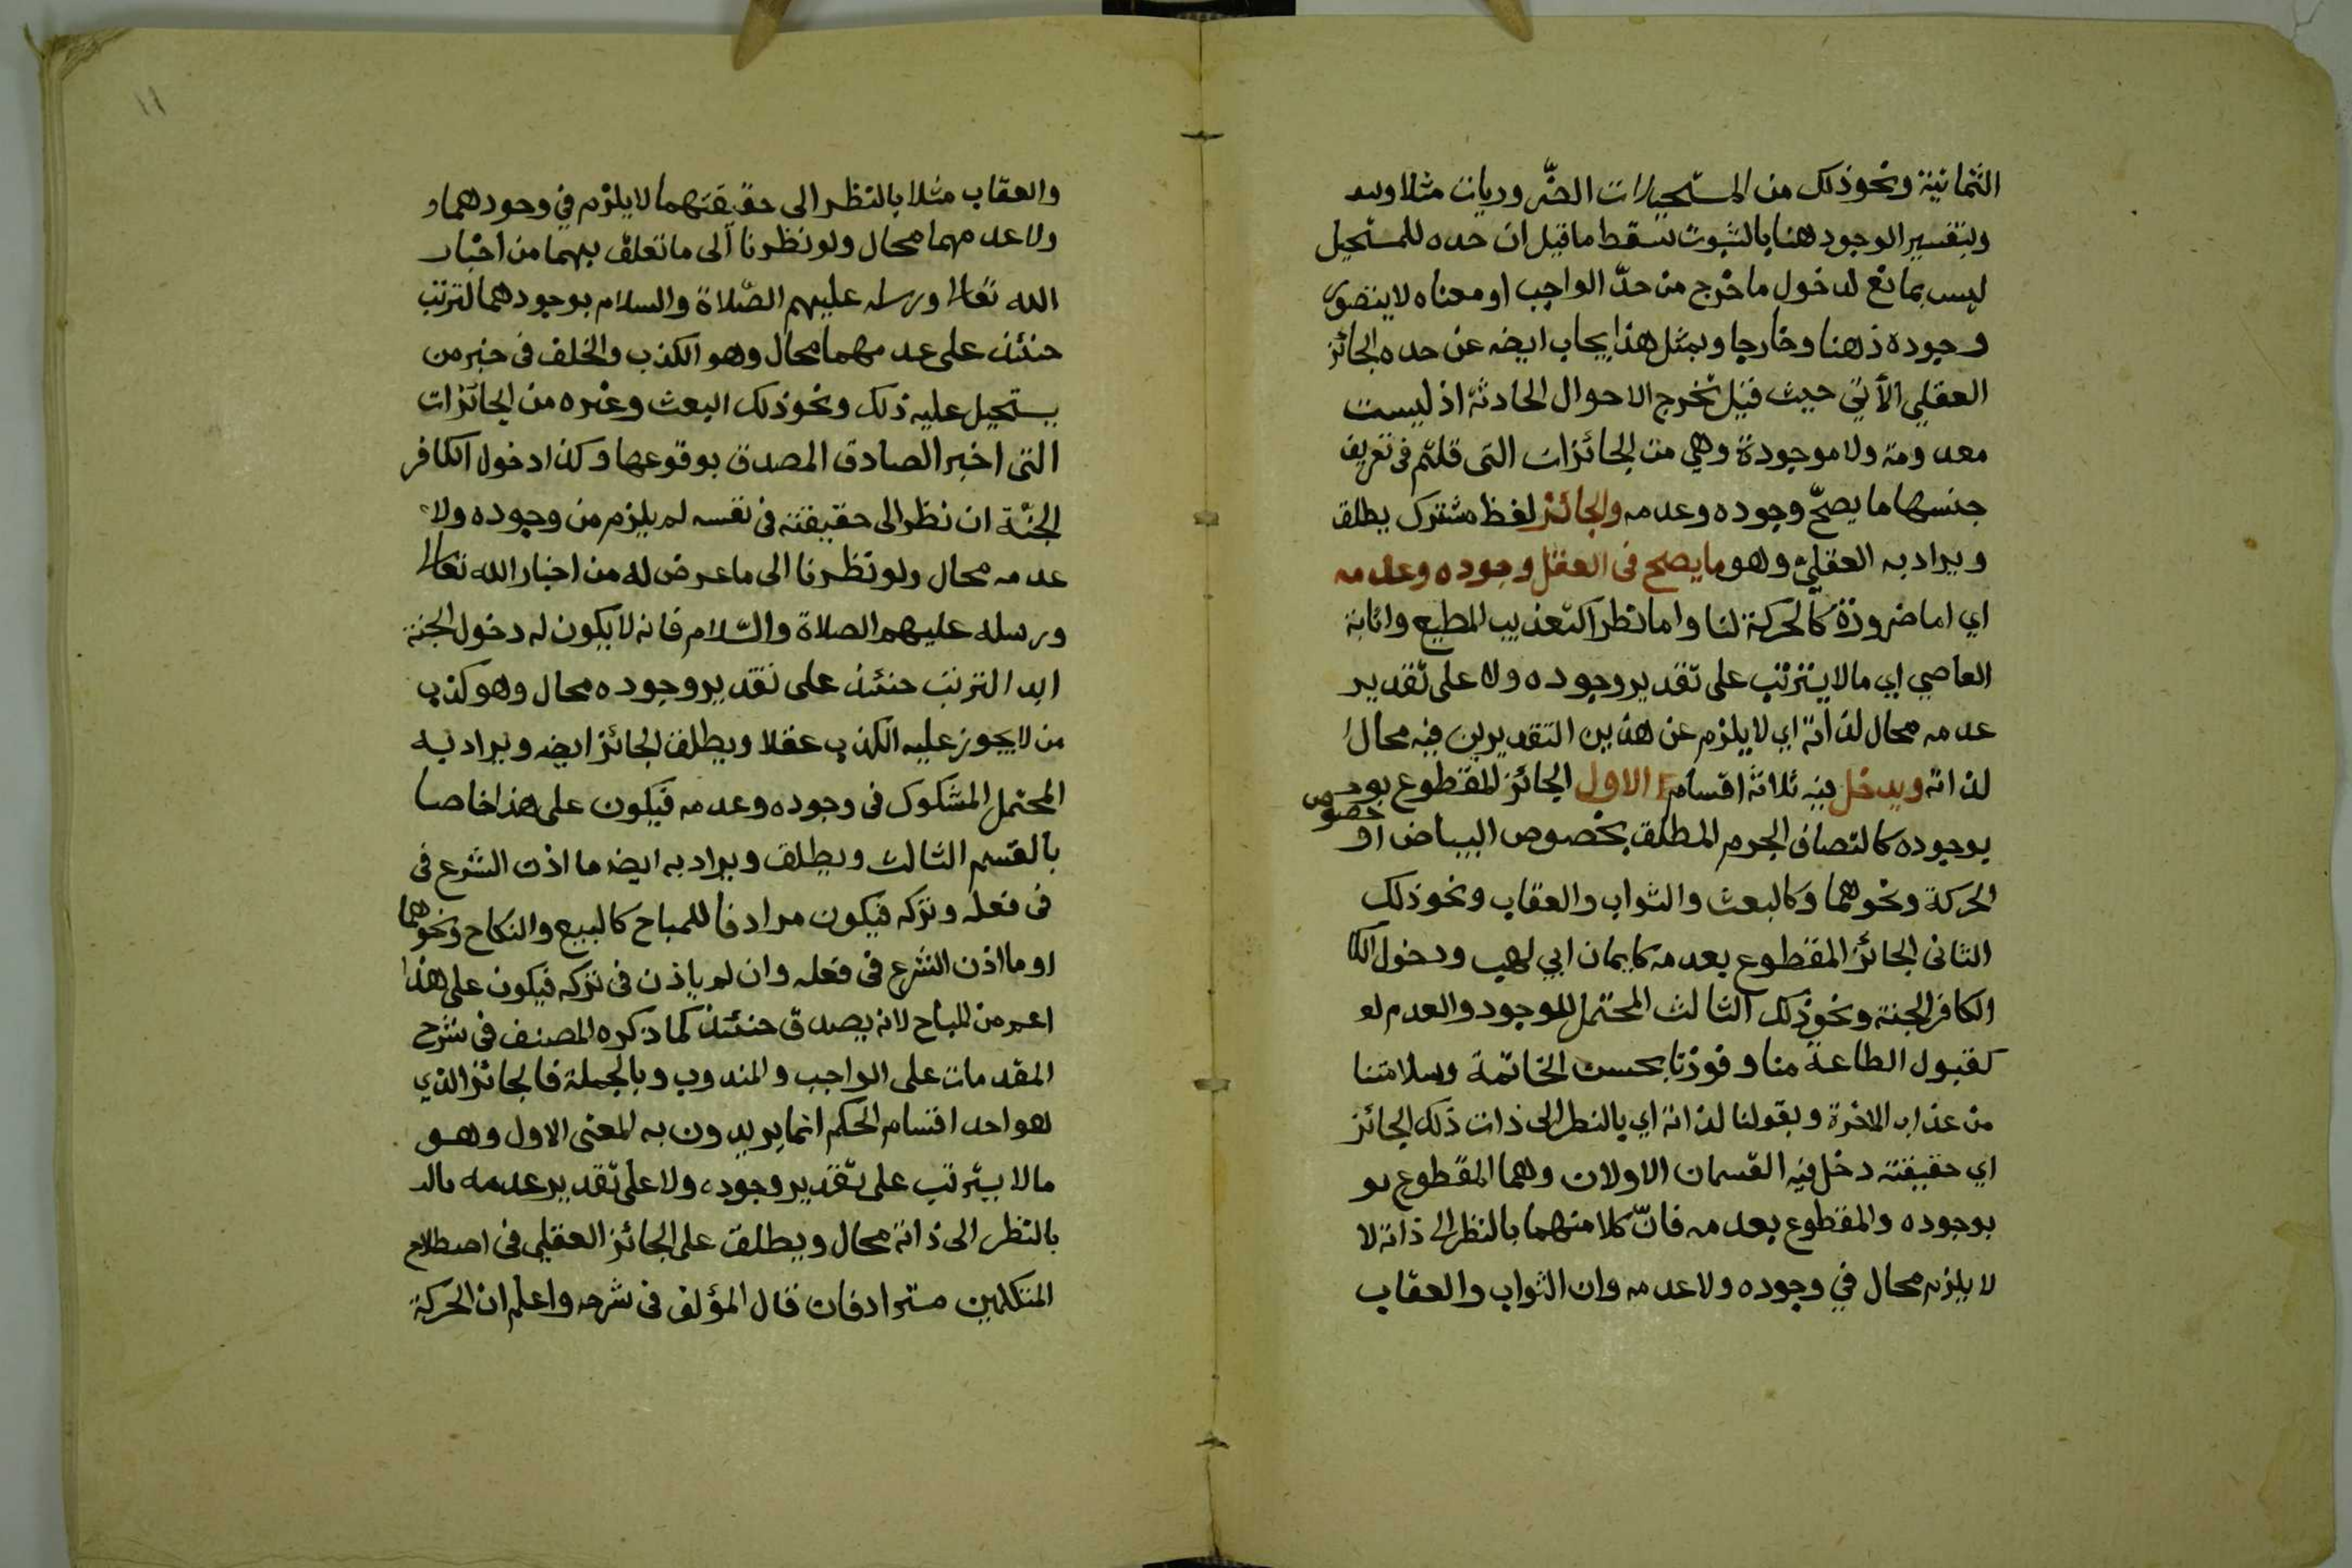 الثمانية ونحو ذلك من المستحيلات الضّروريات مثلا
وبتفسير الوجود هنا بالثبوت سقط ما قيل ان حده للمستحيل
ليس بمانع لدخول ما خرج من حدّ الواجب او معناه لا يتصور
وجوده ذهنا وخارجا وبمثل هذا يجاب ايضه عن حده الجائز
العقلي الأتي حيث قيل تخرج الاحوال الحادثة اذ ليست
معدومة ولا موجودة وهي من الجائزات التى قلتم فى تعريف
جنسها ما يصحّ وجوده وعدمه والجائز لفظ مشترك يطلق
ويراد به العقليّ وهو ما يصح فى العقل وجوده وعدمه
اي اما ضرورة كالحركة لنا واما نظرا كتعذيب المطيع واثابة
العاصي اي ما لا يترتب على تقدير وجوده ولا على تقدير
عدمه محال لذاته اي لا يلزم عن هذين التقديرين فيه محال
لذاته ويدخل فيه ثلاثة اقسام الاول الجائز المقطوع بوجـ
خصوص
بوجوده كالتصاف الجرم المطلق بخصوص البياض او
الحركة ونحوهما وكالبعث والثواب والعقاب ونحو ذلك
الثانى الجائز المقطوع بعدمه كايمان ابي لهب ودخول الكا
الكافر الجنة ونحو ذلك الثالث المحتمل للوجود والعدم لو
كقبول الطاعة منا وفوزنا بحسن الخاتمة وسلامتنا
من عذاب الاخرة وبقولنا لذاته اي بالنظر الى ذات ذلك الجائز
اي حقيقته دخل فيه القسمان الاولان وهما المقطوع بو
بوجوده والمقطوع بعدمه فانّ كلا منهما بالنظر الى ذاته لا
لا يلزم محال في وجوده ولا عدمه وان الثواب والعقاب
١١
والعقاب مثلا بالنظر الى حقيقتهما لا يلزم في وجودهما و
ولا عدمهما محال ولو نظرنا الى ما تعلق بهما من اخبار
الله تعالى ورسله عليهم الصّلاة والسلام بوجودهما لترتب
حنئذ على عدمهما محال وهو الكذب والخلف فى خبر من
يستحيل عليه ذلك ونحو ذلك البعث وغيره من الجائزات
التى اخبر الصادق المصدق بوقوعها وكذا دخول الكافر
الجنّة ان نظر الى حقيقته فى نفسه لم يلزم من وجوده ولا
عدمه محال ولو نظرنا الى ما عرض له من اخبار الله تعالى
ورسله عليهم الصلاة والسّلام فانه لا يكون له دخول الجنة
ابدا لترتب حنئذ على تقدير وجوده محال وهو كذب
من لا يجوز عليه الكذب عقلا ويطلق الجائز ايضه ويراد به
المحتمل المشكوك فى وجوده وعدمه فيكون على هذا خاصا
بالقسم الثالث ويطلق ويراد به ايضه ما اذن الشرع فى
فى فعله وتركه فيكون مرادفا للمباح كالبيع والنكاح ونحوهما
او ما اذن الشرع فى فعله وان لم ياذن فى تركه فيكون على هذا
اعم من المباح لانه يصدق حنئذ كما ذكره المصنف فى شرح
المقدمات على الواجب والمندوب وبالجملة فالجائز الذي
هو احد اقسام الحكم انما يريدون به المعنى الاول وهو
ما لا يترتب على تقدير وجوده ولا على تقدير عدمه بالـ
بالنظر الى ذاته محال ويطلق على الجائز العقلي فى اصطلاح
المتكلمين مترادفان قال المؤلف فى شرحه واعلم ان الحركة